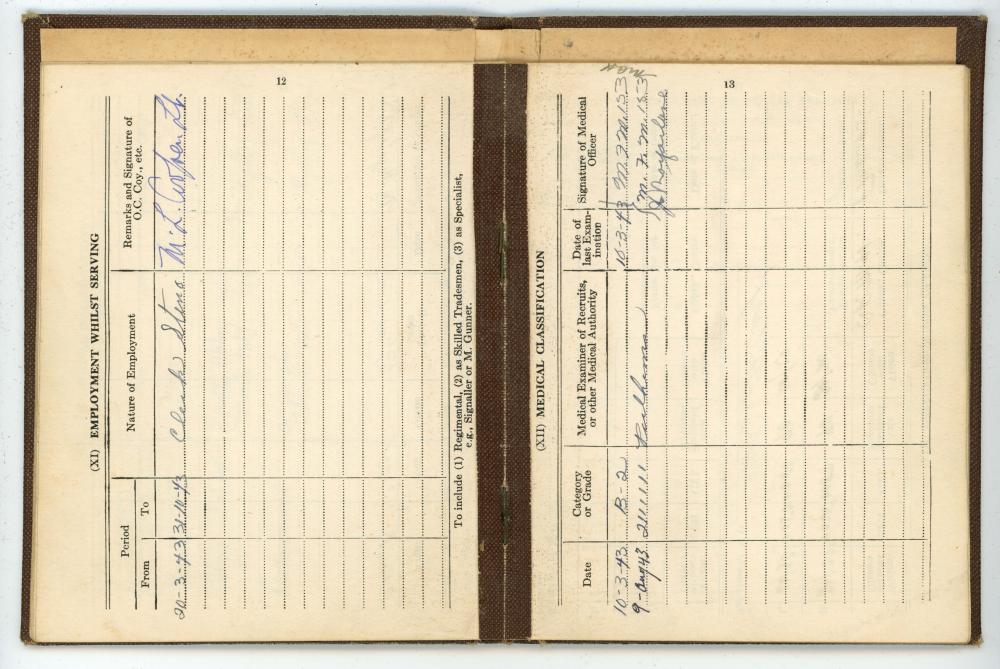 12
(XI) EMPLOYMENT WHILST SERVING
Period
From
To
Nature of Employment
Remarks and Signature of
O.C. Coy., etc.
20-3-43 31-10-43 Clerk Steno M. L.
To include (1) Regimental, (2) as Skilled Tradesmen, (3) as Specialist,
e.g., Signaller or M. Gunner.
13
(XII) MEDICAL CLASSIFICATION
Date
Category
or Grade
Medical Examiner of Recruits,
or other Medical Authority
Date of
last Exam-
ination
Signature of Medical
Officer
10-3-43 B-2 10-3-43
9-Aug 43 2111111